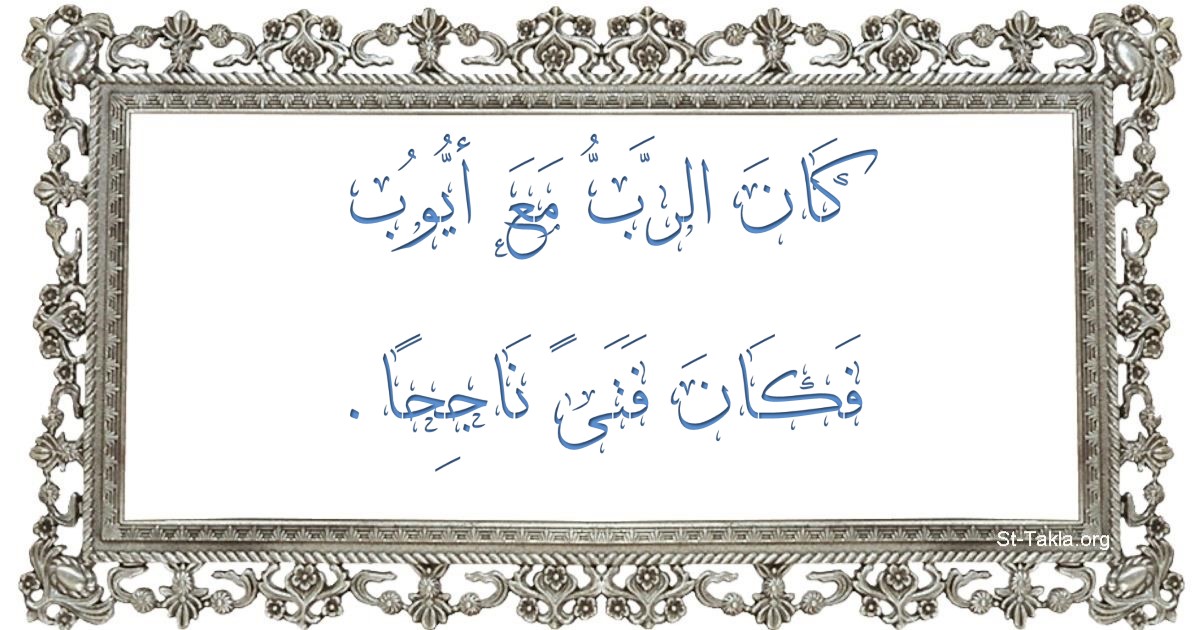 كَانَ الرَّبُّ مَعَ أيُّوُبُ
فَكَانَ فَتَىً نَاجِحًا .
St-Takla.org